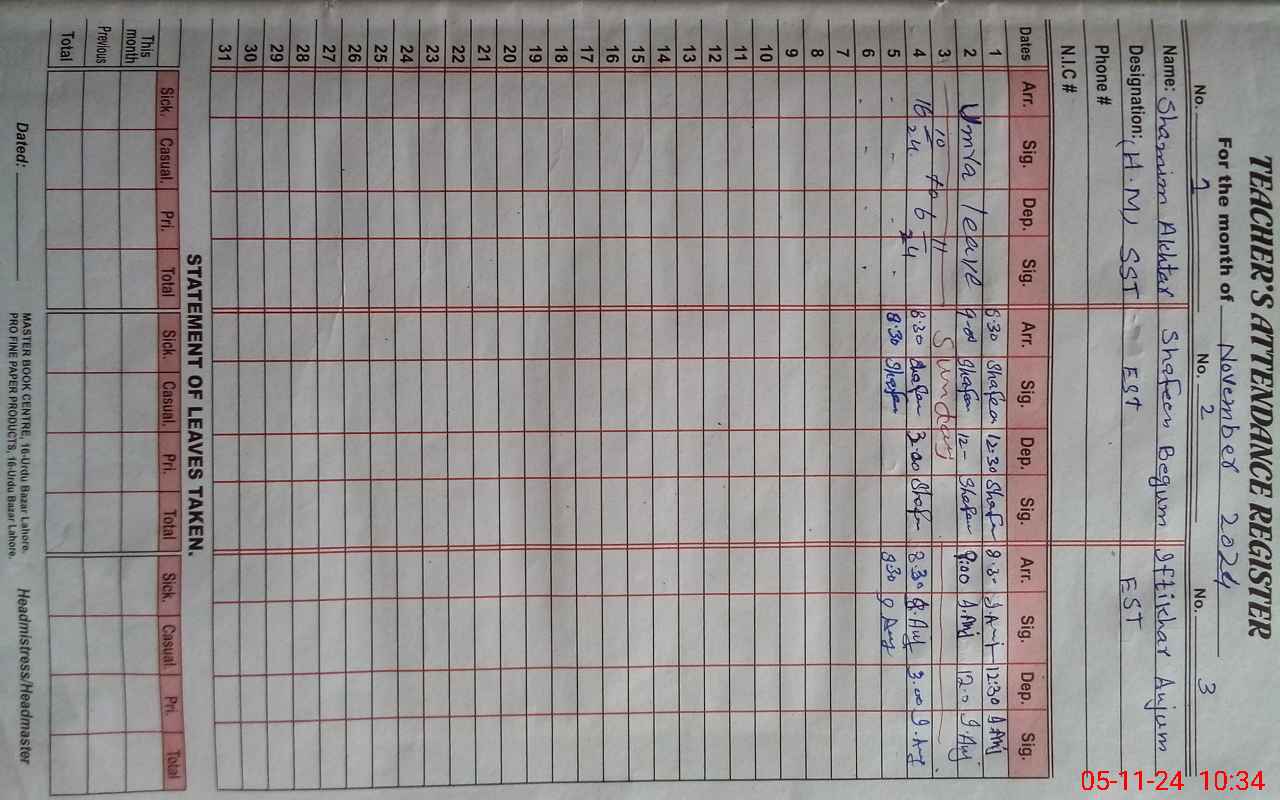 TEACHER'S ATTENDANCE REGISTER
For the month of November 2024
No. 1 No. 2 No. 3
Name: Shamim Akhtar Shafeen Begum Iftikhar Anjum
Designation: (H.M) SST EST EST
Phone #
N.I.C #
Dates Arr. Sig. Dep. Sig. Arr. Sig. Dep. Sig. Arr. Sig. Dep. Sig.
1 8:30 Shafeen 12:30 Shafeen 8:30 I.Anj 12:30 I.Anj
2 Umra leave 9-00 Shafeen 12- Shafeen 9:00 I.Anj 12:0 I.Anj
3 Sunday
4 16 10 24 to 6 11 24 8:30 Shafeen 3:00 Shafeen 8:30 I.Anj 3:00 I.Anj
5 8:30 Shafeen 8:30 I.Anj
6
7
8
9
10
11
12
13
14
15
16
17
18
19
20
21
22
23
24
25
26
27
28
29
30
31
STATEMENT OF LEAVES TAKEN.
Sick. Casual. Pri. Total Sick. Casual. Pri. Total Sick. Casual. Pri. Total
This month
Previous
Total
MASTER BOOK CENTRE, 16-Urdu Bazar Lahore.
PRO FINE PAPER PRODUCTS, 16-Urdu Bazar Lahore.
Dated: Headmistress/Headmaster
05-11-24 10:34